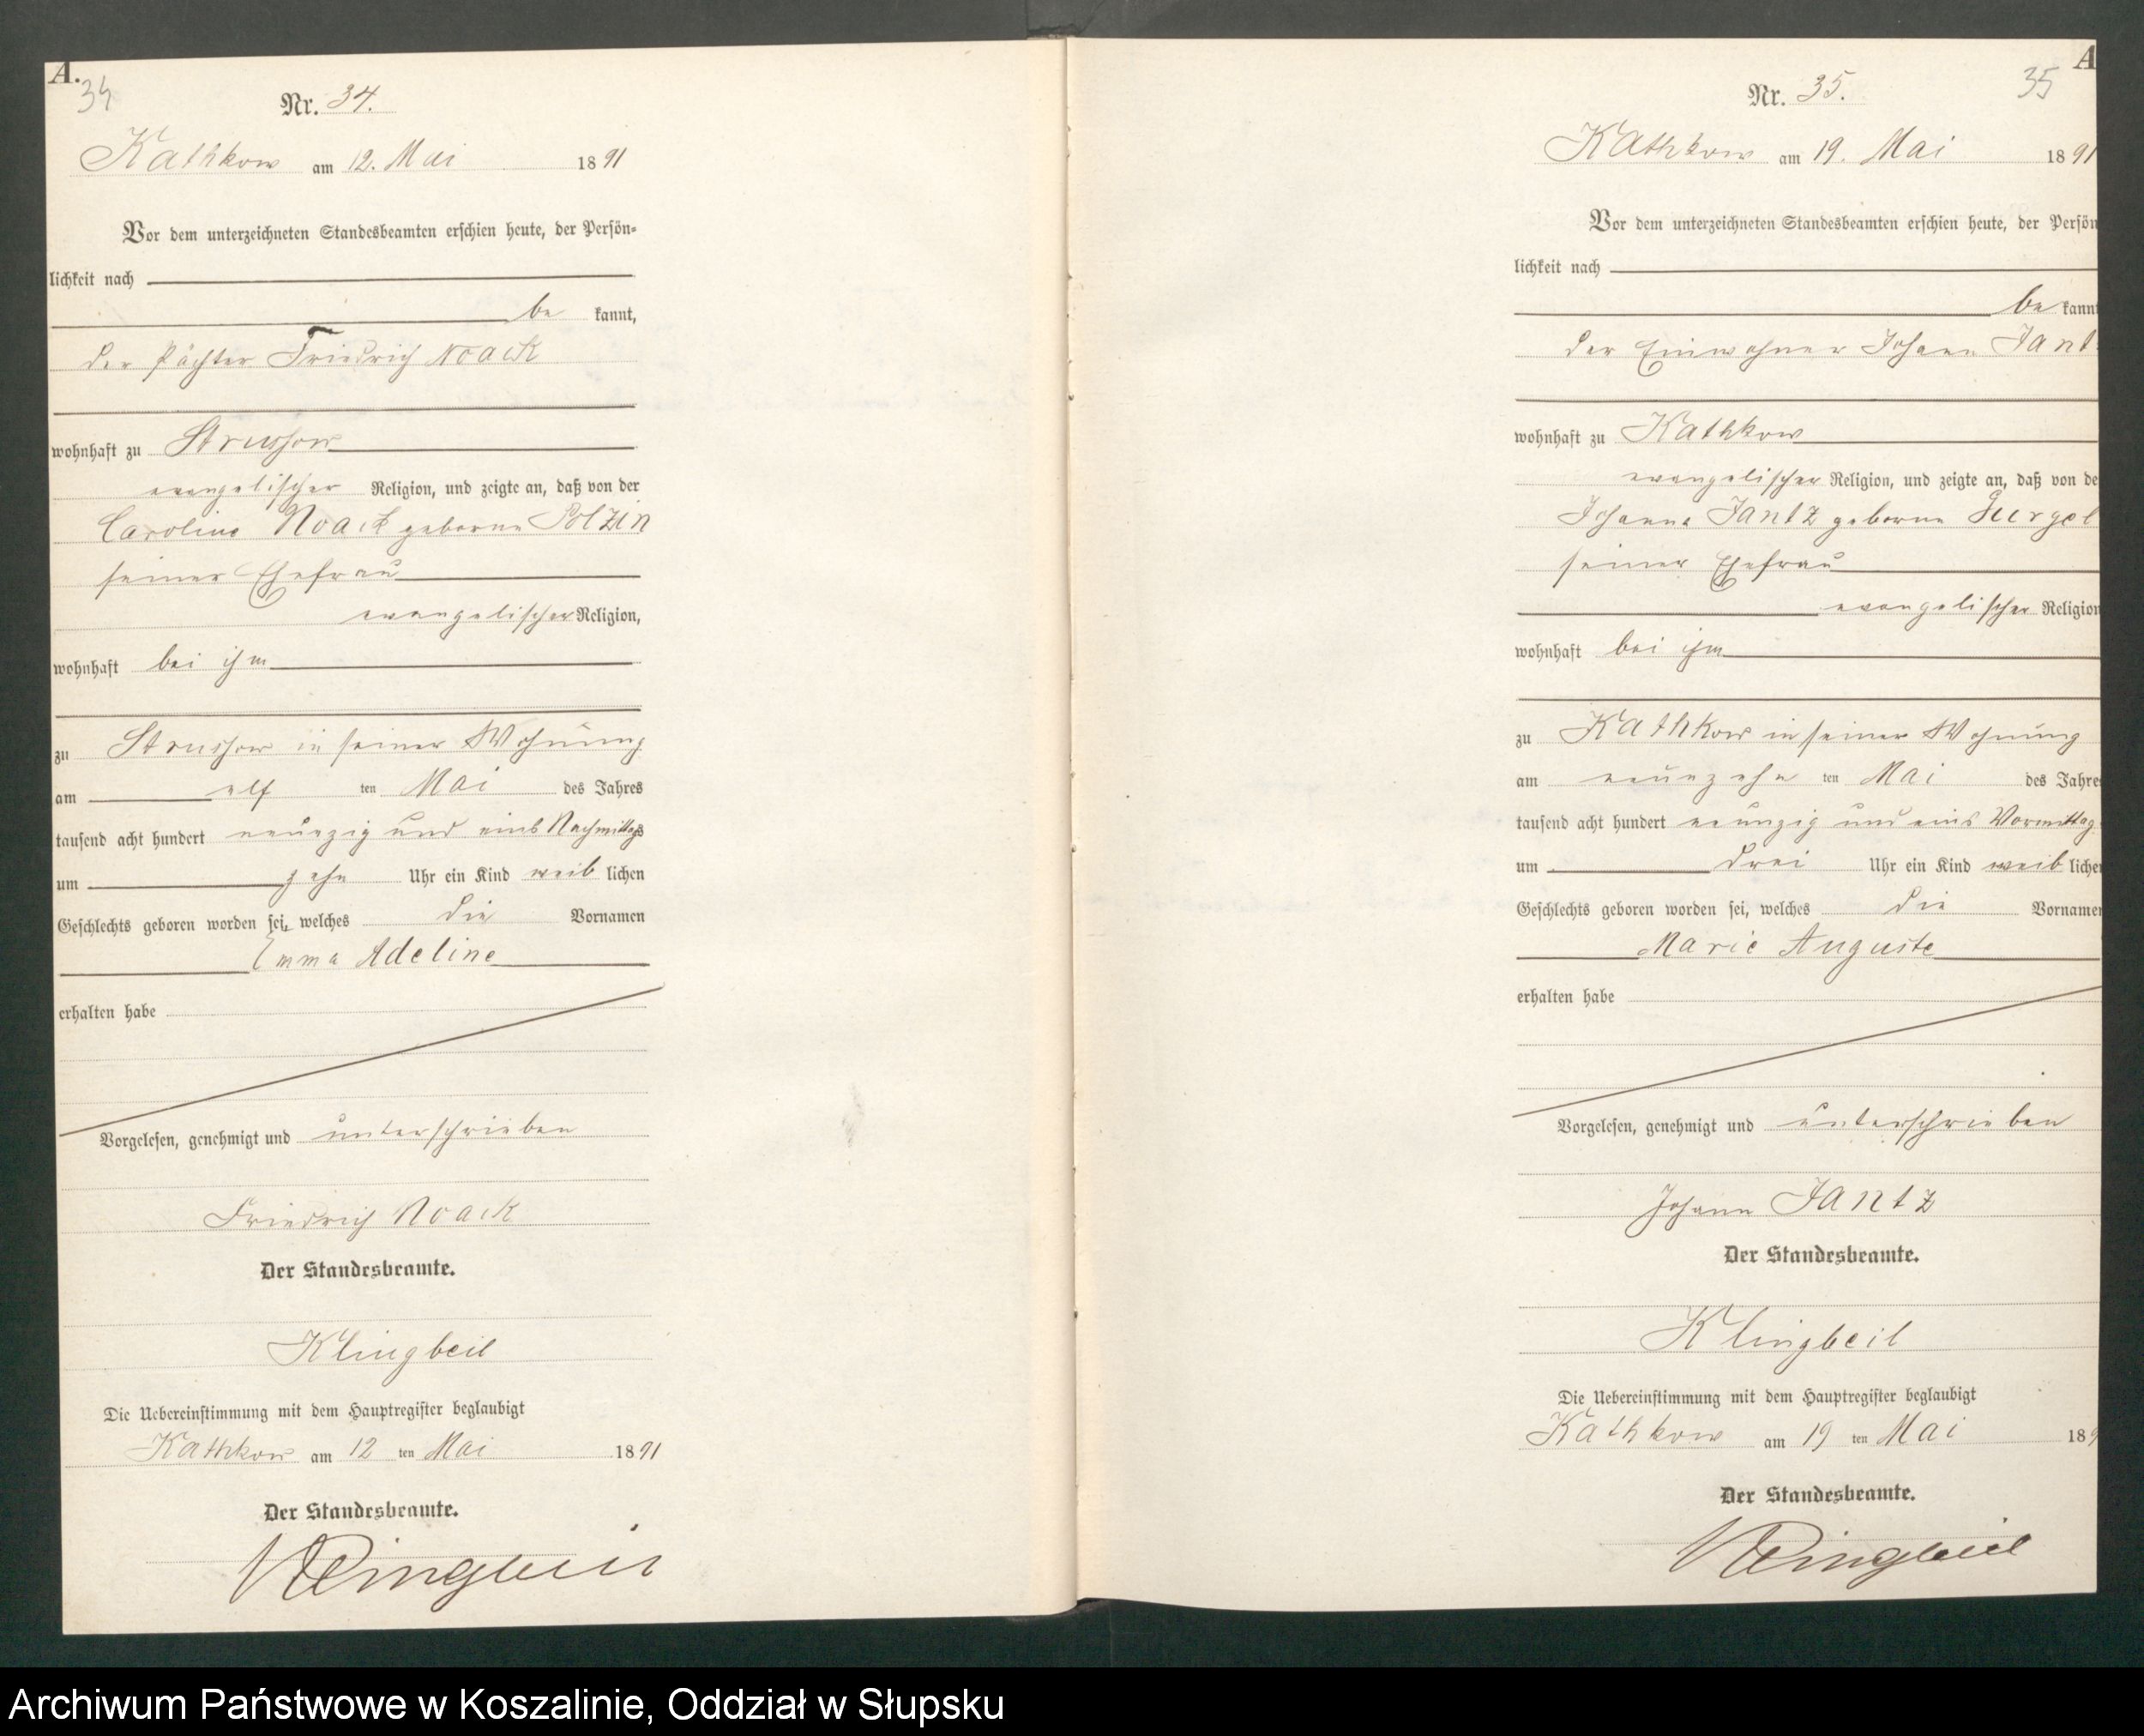 A.
34
Nr. 34.
Kathkow am 12. Mai 1891
Vor dem unterzeichneten Standesbeamten erschien heute, der Persön-
lichkeit nach
be kannt,
der Pächter Friedrich Noack
wohnhaft zu Strussow
evangelischer Religion, und zeigte an, daß von der
Caroline Noack geborne Polzin
seiner Ehefrau
evangelischer Religion,
wohnhaft bei ihm
zu Strussow in seiner Wohnung
am elf ten Mai des Jahres
tausend acht hundert neunzig und eins Nachmittags
um zehn Uhr ein Kind weib lichen
Geschlechts geboren worden sei, welches die Vornamen
Emma Adeline
erhalten habe
Vorgelesen, genehmigt und unterschrieben
Friedrich Noack
Der Standesbeamte.
Klingbeil
Die Uebereinstimmung mit dem Hauptregister beglaubigt
Kathkow am 12 ten Mai 1891
Der Standesbeamte.
Klingbeil
A
35
Nr. 35.
Kathkow am 19. Mai 1891
Vor dem unterzeichneten Standesbeamten erschien heute, der Persön
lichkeit nach
be kannt
der Einwohner Johann Jant
wohnhaft zu Kathkow
evangelischer Religion, und zeigte an, daß von de
Johanne Jantz geborne Gurgel
seiner Ehefrau
evangelischer Religion
wohnhaft bei ihm
zu Kathkow in seiner Wohnung
am neunzehn ten Mai des Jahre
tausend acht hundert neunzig und eins Vormittag
um drei Uhr ein Kind weib liche
Geschlechts geboren worden sei, welches die Vorname
Marie Auguste
erhalten habe
Vorgelesen, genehmigt und unterschrieben
Johann Jantz
Der Standesbeamte.
Klingbeil
Die Uebereinstimmung mit dem Hauptregister beglaubigt
Kathkow am 19 ten Mai 189
Der Standesbeamte.
Klingbeil
Archiwum Państwowe w Koszalinie, Oddział w Słupsku